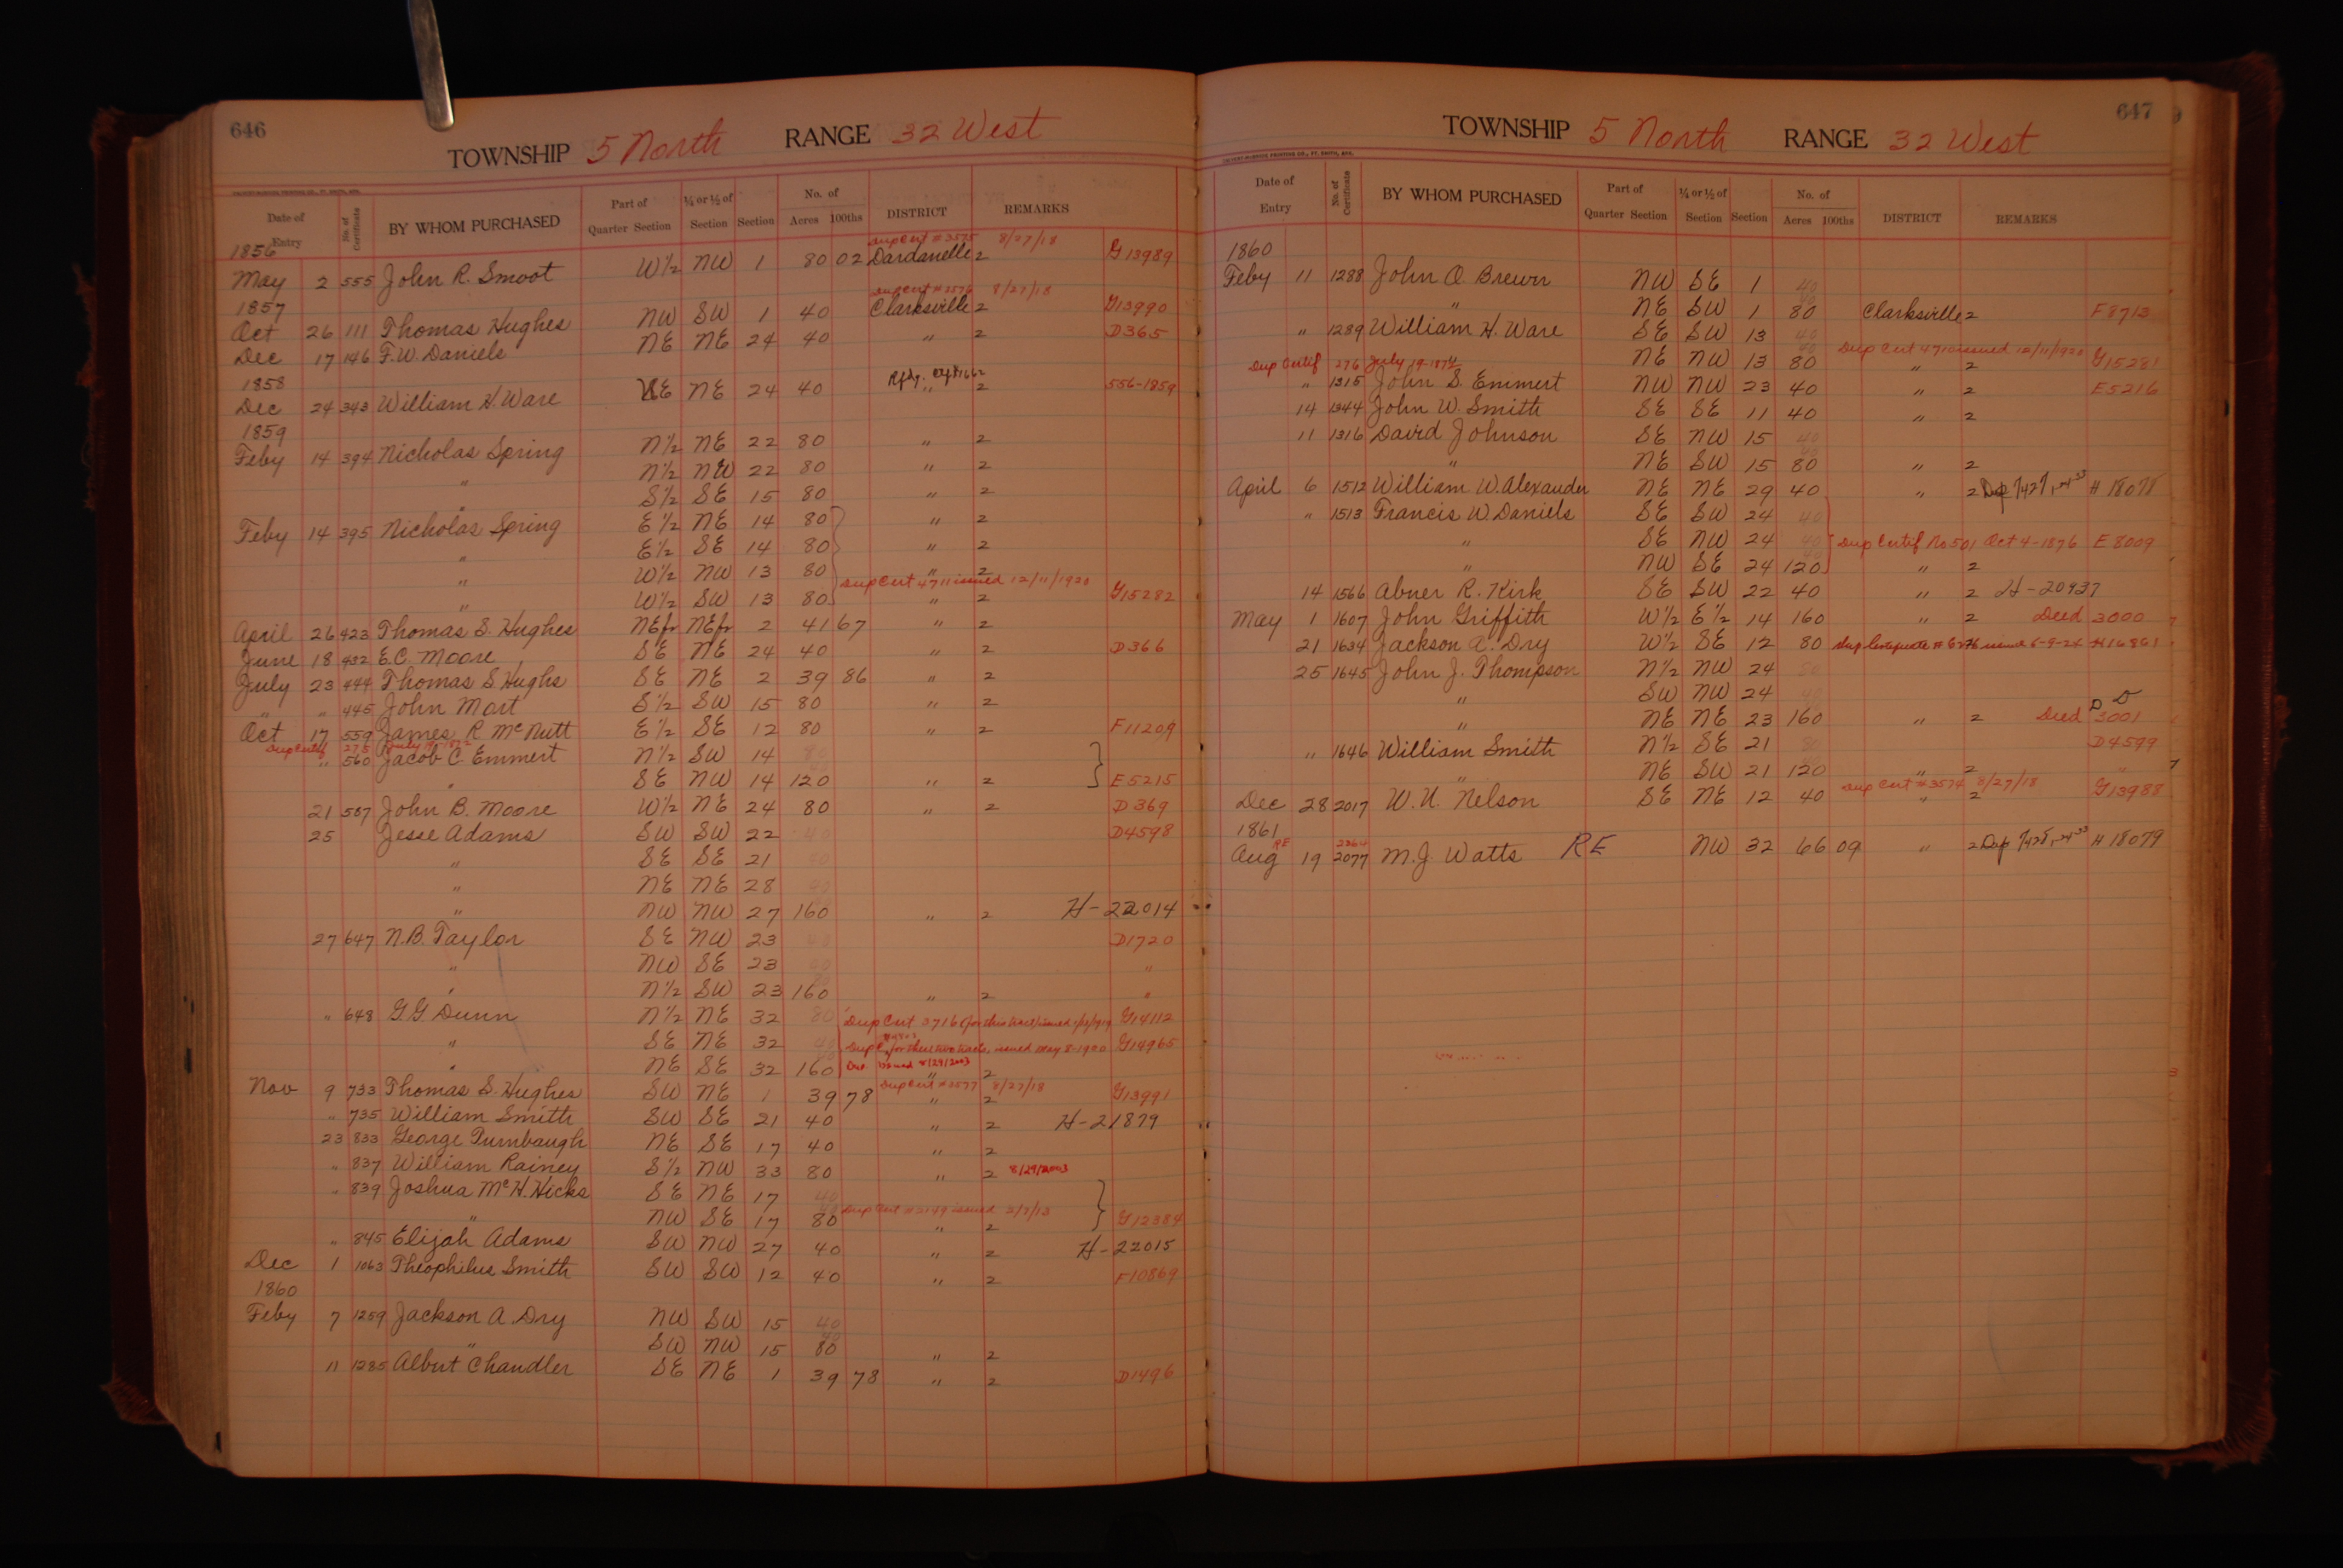 646
TOWNSHIP 5 North RANGE 32 West
Date of Entry No. of Certificate BY WHOM PURCHASED Part of Quarter Section ¼ or ½ of Section Section No. of Acres 100ths DISTRICT REMARKS
1856 Dup Cert # 3575 8/27/18
May 2 555 John R. Smoot W½ NW 1 80 02 Dardanelle 2 G13989
1857 Dup Cert # 3576 8/27/18
Oct 26 111 Thomas Hughes NW SW 1 40 Clarksville 2 G13990
Dec 17 146 F.W. Daniels NE NE 24 40 " 2 D365
1858
Dec 24 343 William H. Ware NE NE 24 40 " 2 556-1859
1859
Feby 14 394 Nicholas Spring N½ NE 22 80 " 2
" N½ NW 22 80 " 2
" S½ SE 15 80 " 2
Feby 14 395 Nicholas Spring E½ NE 14 80 " 2
" E½ SE 14 80 " 2
" W½ NW 13 80 " 2
Dup Cert 4711 issued 12/11/1920
" W½ SW 13 80 " 2 G15282
April 26 423 Thomas S. Hughes NEfr NEfr 2 41 67 " 2
June 18 432 E.C. Moore SE NE 24 40 " 2 D366
July 23 444 Thomas S. Hughs SE NE 2 39 86 " 2
" " 445 John Mort S½ SW 15 80 " 2
Oct 17 559 James R McNutt E½ SE 12 80 " 2 F11209
Dup Certif 275 July 19-1872
" 560 Jacob C. Emmert N½ SW 14 80
" SE NW 14 120 " 2 E5215
21 587 John B. Moore W½ NE 24 80 " 2 D369
25 Jesse Adams SW SW 22 40 D4598
" SE SE 21 40
" NE NE 28 40
" NW NW 27 160 " 2 H-22014
27 647 N.B. Taylor SE NW 23 40 D1720
" NW SE 23 40 "
" N½ SW 23 160 " 2 "
" 648 G.G Dunn N½ NE 32 80 Dup Cert 3716 (for this tract) issued 1/13/1919 G14112
" SE NE 32 40 Dup C for these two tracts, issued May 8-1920 G14965
" NE SE 32 160 issued 8/29/2003 " 2
Dup Cert # 3577 8/27/18
Nov 9 733 Thomas S. Hughes SW NE 1 39 78 " 2 G13991
" 735 William Smith SW SE 21 40 " 2 H-21879
23 833 George Turnbaugh NE SE 17 40 " 2
" 837 William Rainey S½ NW 33 80 " 2 8/29/2003
" 839 Joshua McH. Hicks SE NE 17 40
Dup Cert # 2149 issued 2/7/13
" NW SE 17 80 " 2 G12384
" 845 Elijah Adams SW NW 27 40 " 2 H-22015
Dec 1 1063 Theophilus Smith SW SW 12 40 " 2 F10869
1860
Feby 7 1259 Jackson A. Dry NW SW 15 40
" SW NW 15 80 " 2
11 1285 Albert Chandler SE NE 1 39 78 " 2 D1496
647
TOWNSHIP 5 North RANGE 32 West
Date of Entry No. of Certificate BY WHOM PURCHASED Part of Quarter Section ¼ or ½ of Section Section No. of Acres 100ths DISTRICT REMARKS
1860
Feby 11 1288 John O. Brewn NW SE 1 40
" NE SW 1 80 Clarksville 2 F8713
" 1289 William H. Ware SE SW 13 40
Dup Cert 4710 issued 12/11/1920
NE NW 13 80 " 2 G15281
Dup Certif 276 July 19-1874
" 1315 John S. Emmert NW NW 23 40 " 2 E5216
14 1344 John W. Smith SE SE 11 40 " 2
11 1316 David Johnson SE NW 15 40
" NE SW 15 80 " 2
April 6 1512 William W. Alexander NE NE 29 40 " 2 Dup H 18078
" 1513 Francis W. Daniels SE SW 24 40
" SE NW 24 40 Dup Certif No 501 Oct 4-1876 E8009
" NW SE 24 120 " 2
14 1566 Abner R. Kirk SE SW 22 40 " 2 H-20937
May 1 1607 John Griffith W½ E½ 14 160 " 2 Deed 3000
21 1634 Jackson A. Dry W½ SE 12 80 Dup Certificate # 6276 issued 6-9-24 H16861
25 1645 John J. Thompson N½ NW 24 80
" SW NW 24 40
" NE NE 23 160 " 2 Deed D D 3001
" 1646 William Smith N½ SE 21 80 D4599
" NE SW 21 120 " 2 "
Dup Cert # 3574 8/27/18
Dec 28 2017 W.U. Nelson SE NE 12 40 " 2 G13988
1861
RE 2264
Aug 19 2077 M.J. Watts RE NW 32 66 09 " 2 Dup H 18079